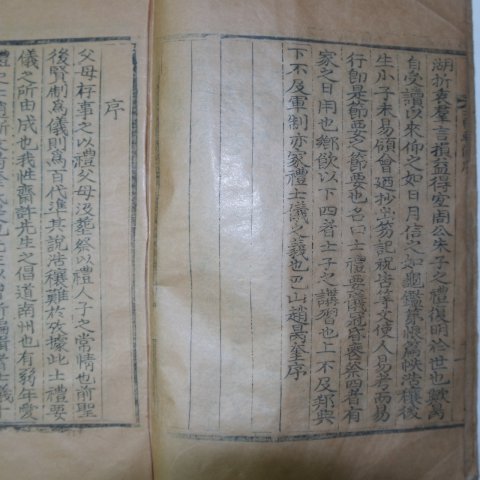 湖折衷羣言損益得宜周公朱子之禮復明於世也歟
自受讀以來仰之如日月信之如龜鑑第爲帙浩穰後
生小子未易領會廼抄笏記祝告等文使人易考而易
行卽是節要之節要也名曰士禮要儀冠昏喪祭四者有
家之日用也鄕飮以下四者士子之講習也上不及邦典
下不及軍制亦家禮士儀之義也巴山趙昺奎序
序
父母存事之以禮父母沒葬終以禮人子之常情也前聖
後賢制爲儀則爲百代準其說浩穰難於攷據此士禮要
儀之所由成也我性齋許先生之倡道南州也有弱年受